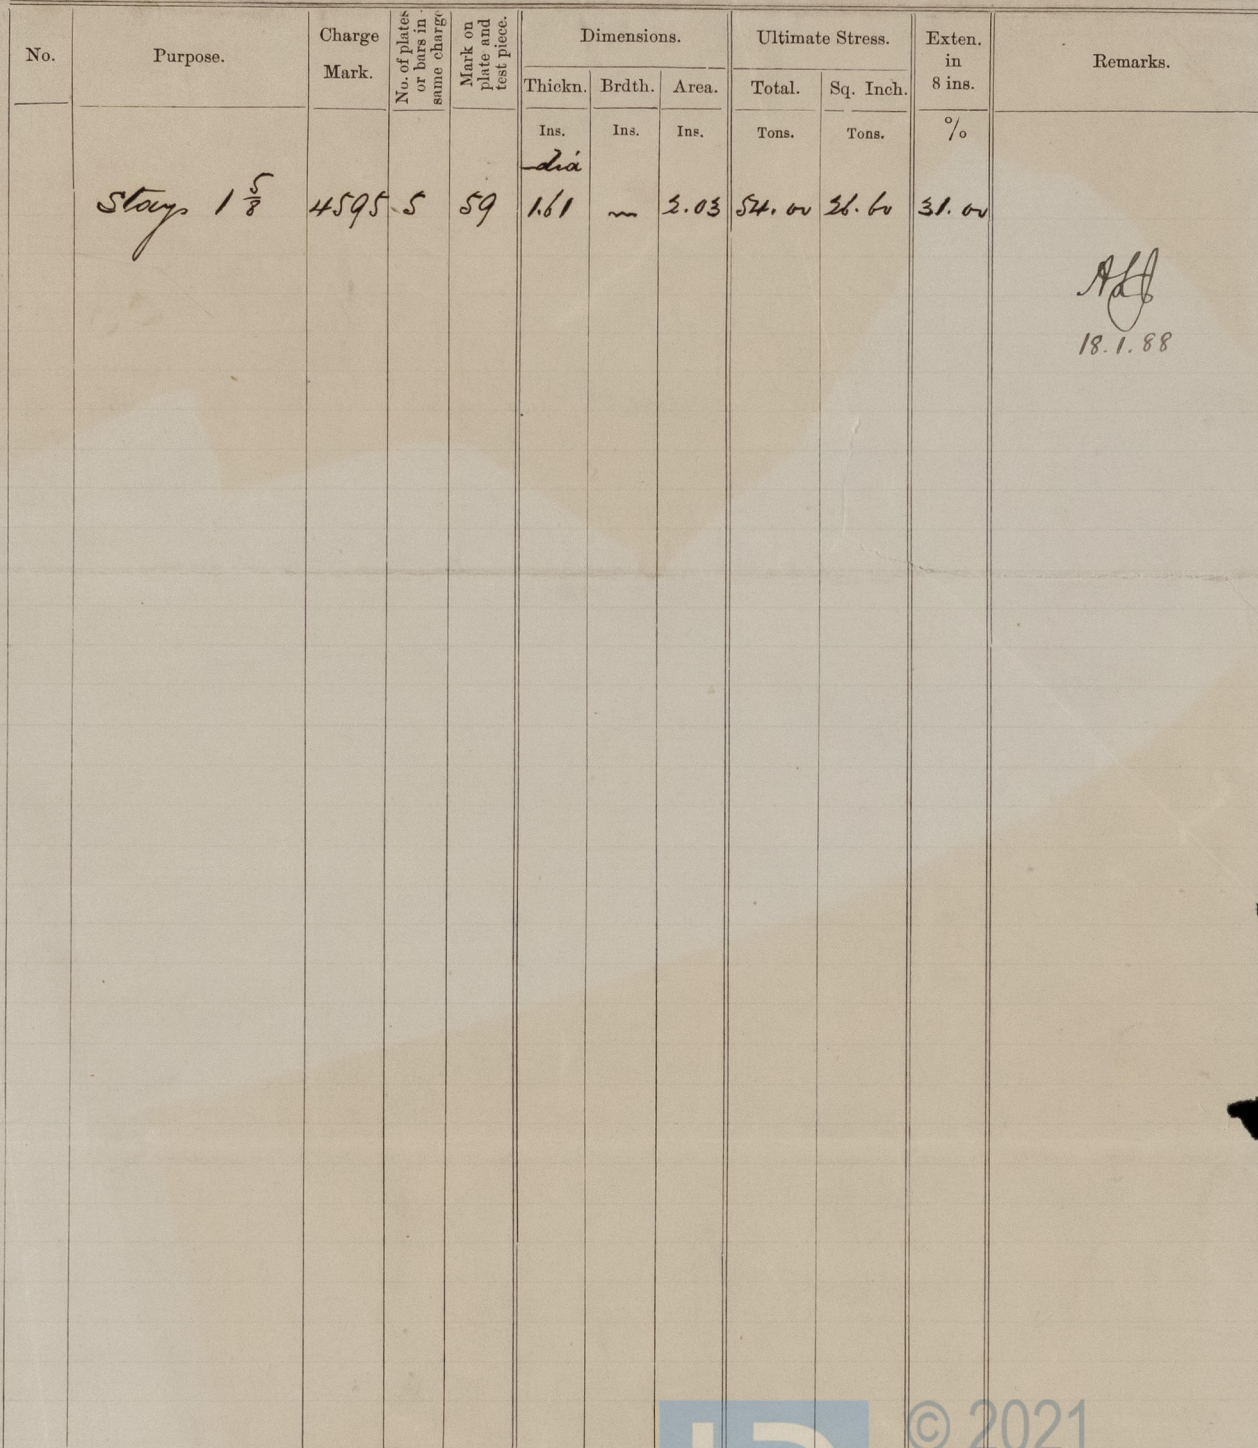 No.
Purpose.
Charge
Mark.
No. of plates
or bars in
same charge
Mark on
plate and
test piece.
Dimensions.
Thickn. Brdth. Area.
Ultimate Stress.
Total. Sq. Inch.
Exten.
in
8 ins.
Remarks.
Ins. Ins. Ins. Tons. Tons. %
dia
Stays 1 5/8 4595 5 59 1.61 〃 2.03 54.00 26.60 31.00
18.1.88
© 2021